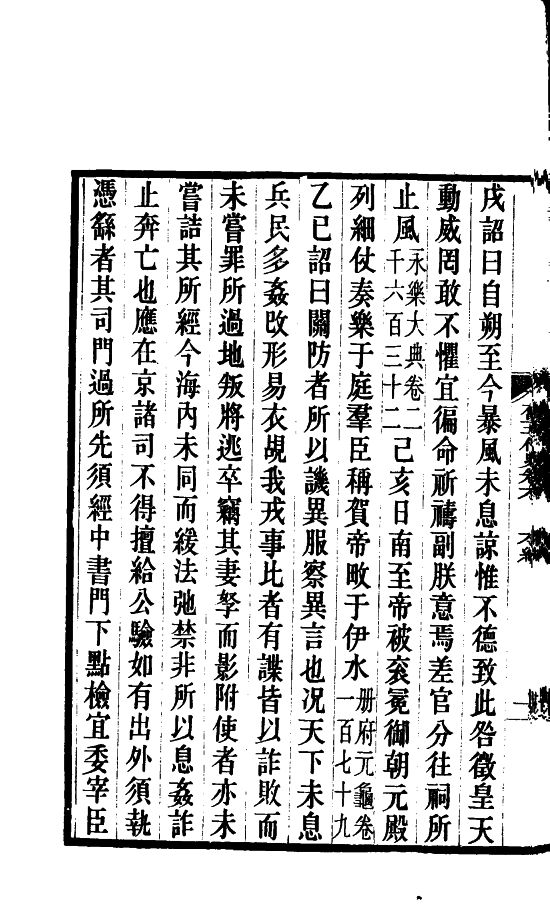 戌詔曰自朔至今暴風未息諒惟不德致此咎徵皇天
動威罔敢不懼宜徧命祈禱副朕意焉差官分往祠所
止風永樂大典卷二千六百三十二己亥日南至帝被袞冕御朝元殿
列細仗奏樂于庭羣臣稱賀帝畋于伊水冊府元龜卷一百七十九
乙巳詔曰關防者所以譏異服察異言也況天下未息
兵民多姦改形易衣覘我戎事比者有諜皆以詐敗而
未嘗罪所過地叛將逃卒竊其妻孥而影附使者亦未
嘗詰其所經今海內未同而緩法弛禁非所以息姦詐
止奔亡也應在京諸司不得擅給公驗如有出外須執
憑繇者其司門過所先須經中書門下點檢宜委宰臣